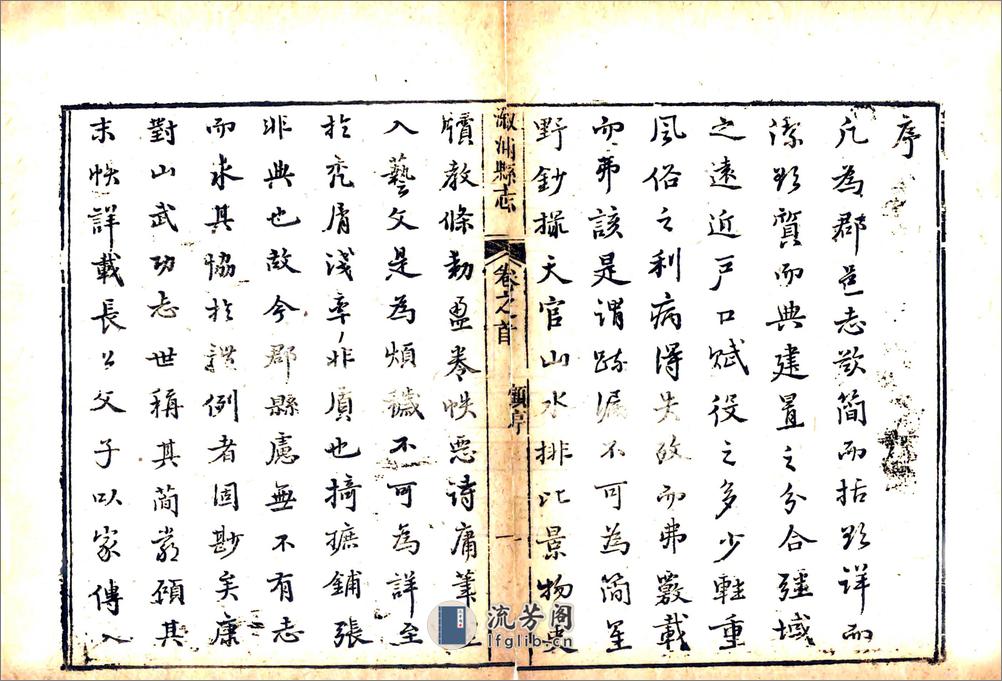 序
凡為郡邑志欲簡而括欲詳而
潔欲質而典建置之分合疆域
之遠近戶口賦役之多少輕重
風俗之利病得失故而弗覈載
而弗該是謂疏漏不可為簡星
野鈔撮天官山水排比景物吏
溆浦縣志
卷之首
顧序
一
牘教條動盈卷帙惡詩庸筆
入藝文是為煩穢不可為詳至
於荒屑淺率非質也摛摭鋪張
非典也故今郡縣慮無不有志
而求其協於譔例者固尠矣康
對山武功志世稱其簡嚴顧其
末帙詳載長公父子以家傳入
流芳阁
lfglib.cn